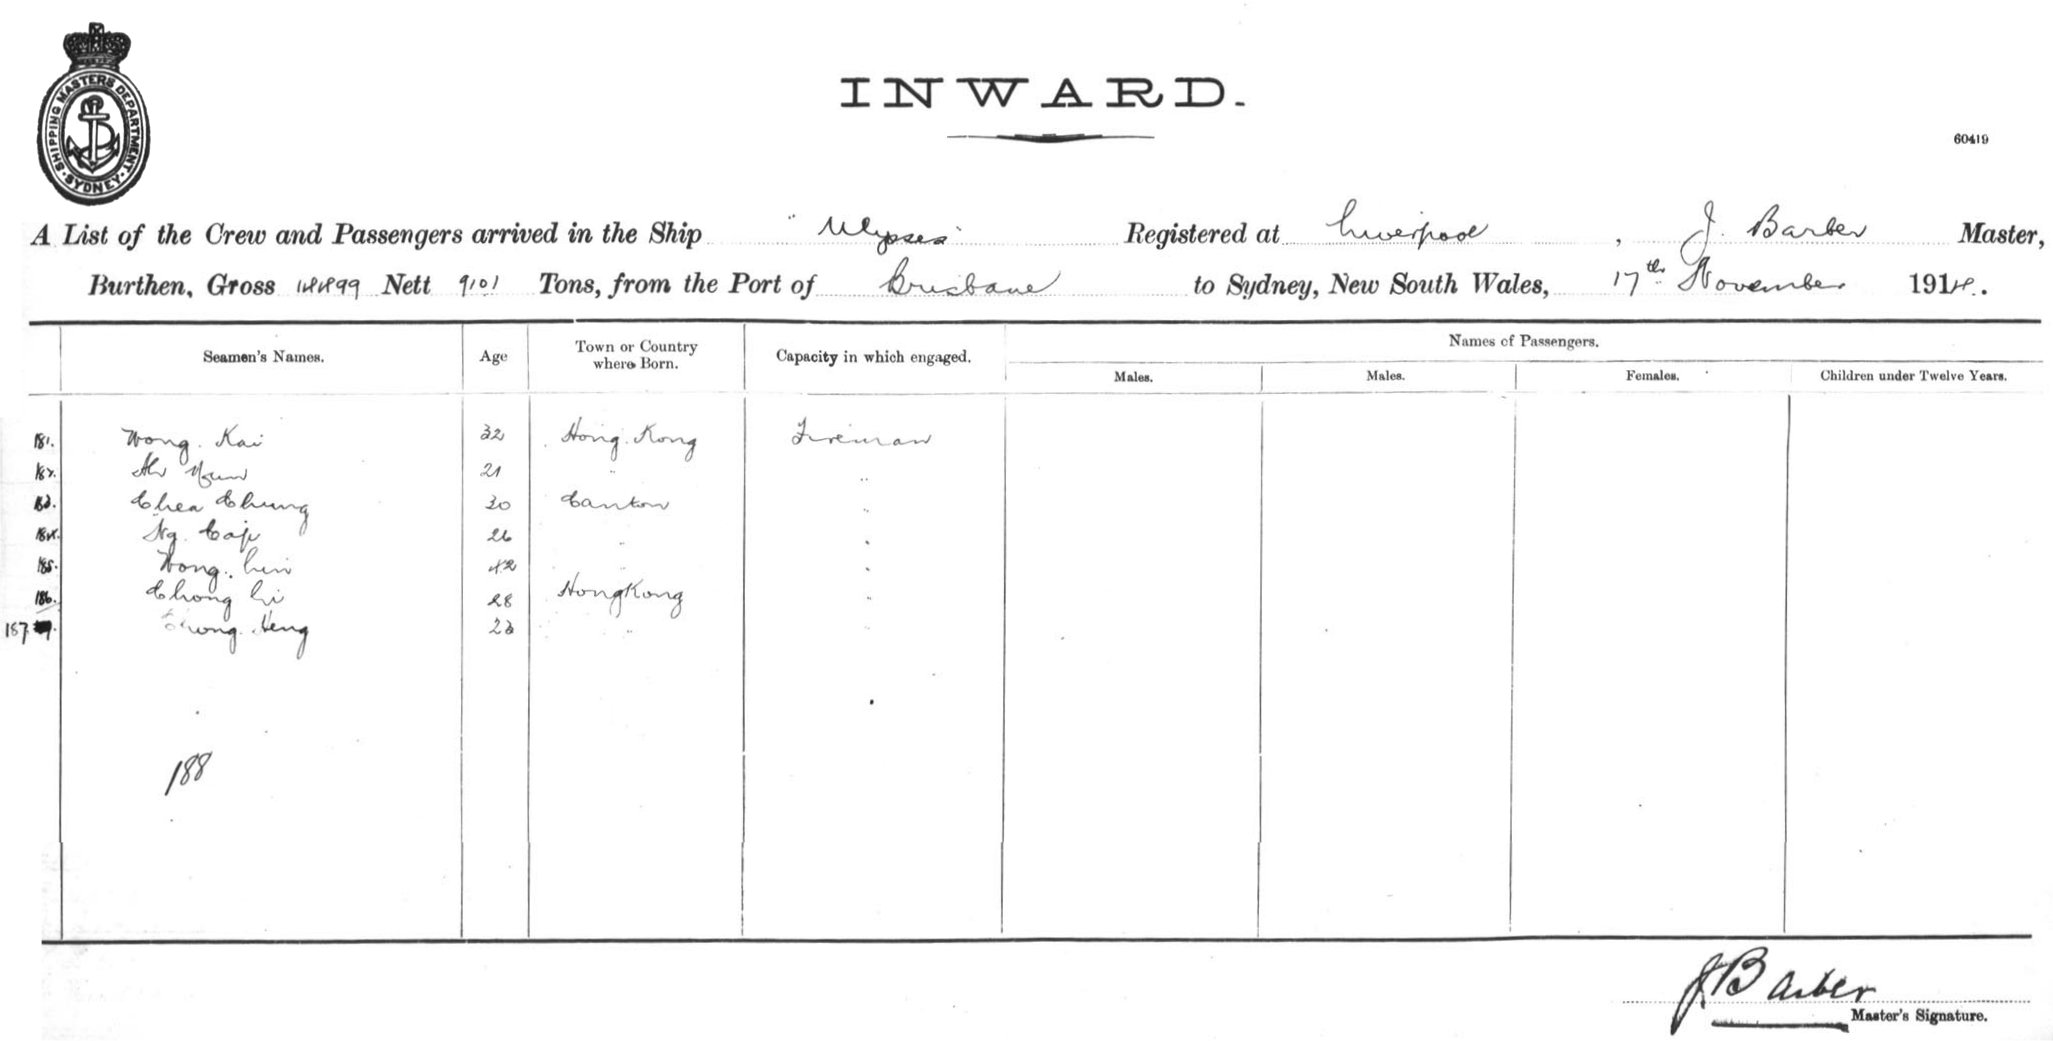 SHIPPING MASTERS DEPARTMENT. SYDNEY.
INWARD.
60419
A List of the Crew and Passengers arrived in the Ship "Ulysses" Registered at Liverpool, J. Barber Master,
Burthen, Gross 14499 Nett 9101 Tons, from the Port of Brisbane to Sydney, New South Wales, 17th November 1914.
Seamen's Names. Age Town or Country where Born. Capacity in which engaged. Names of Passengers.
Males. Males. Females. Children under Twelve Years.
181. Wong Kai 32 Hong Kong Fireman
182. Ah 21 " "
183. Chea Chung 30 Canton "
184. Ng 26 " "
185. Wong Lin 42 " "
186. Chong Li 28 Hong Kong "
187 Heng 23 " "
188
J Barber
Master's Signature.